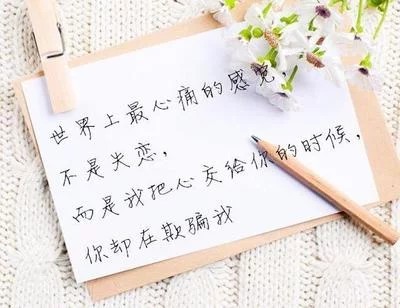 世界上最心痛的感觉
不是失恋，
而是我把心交给你的时候，
你却在欺骗我